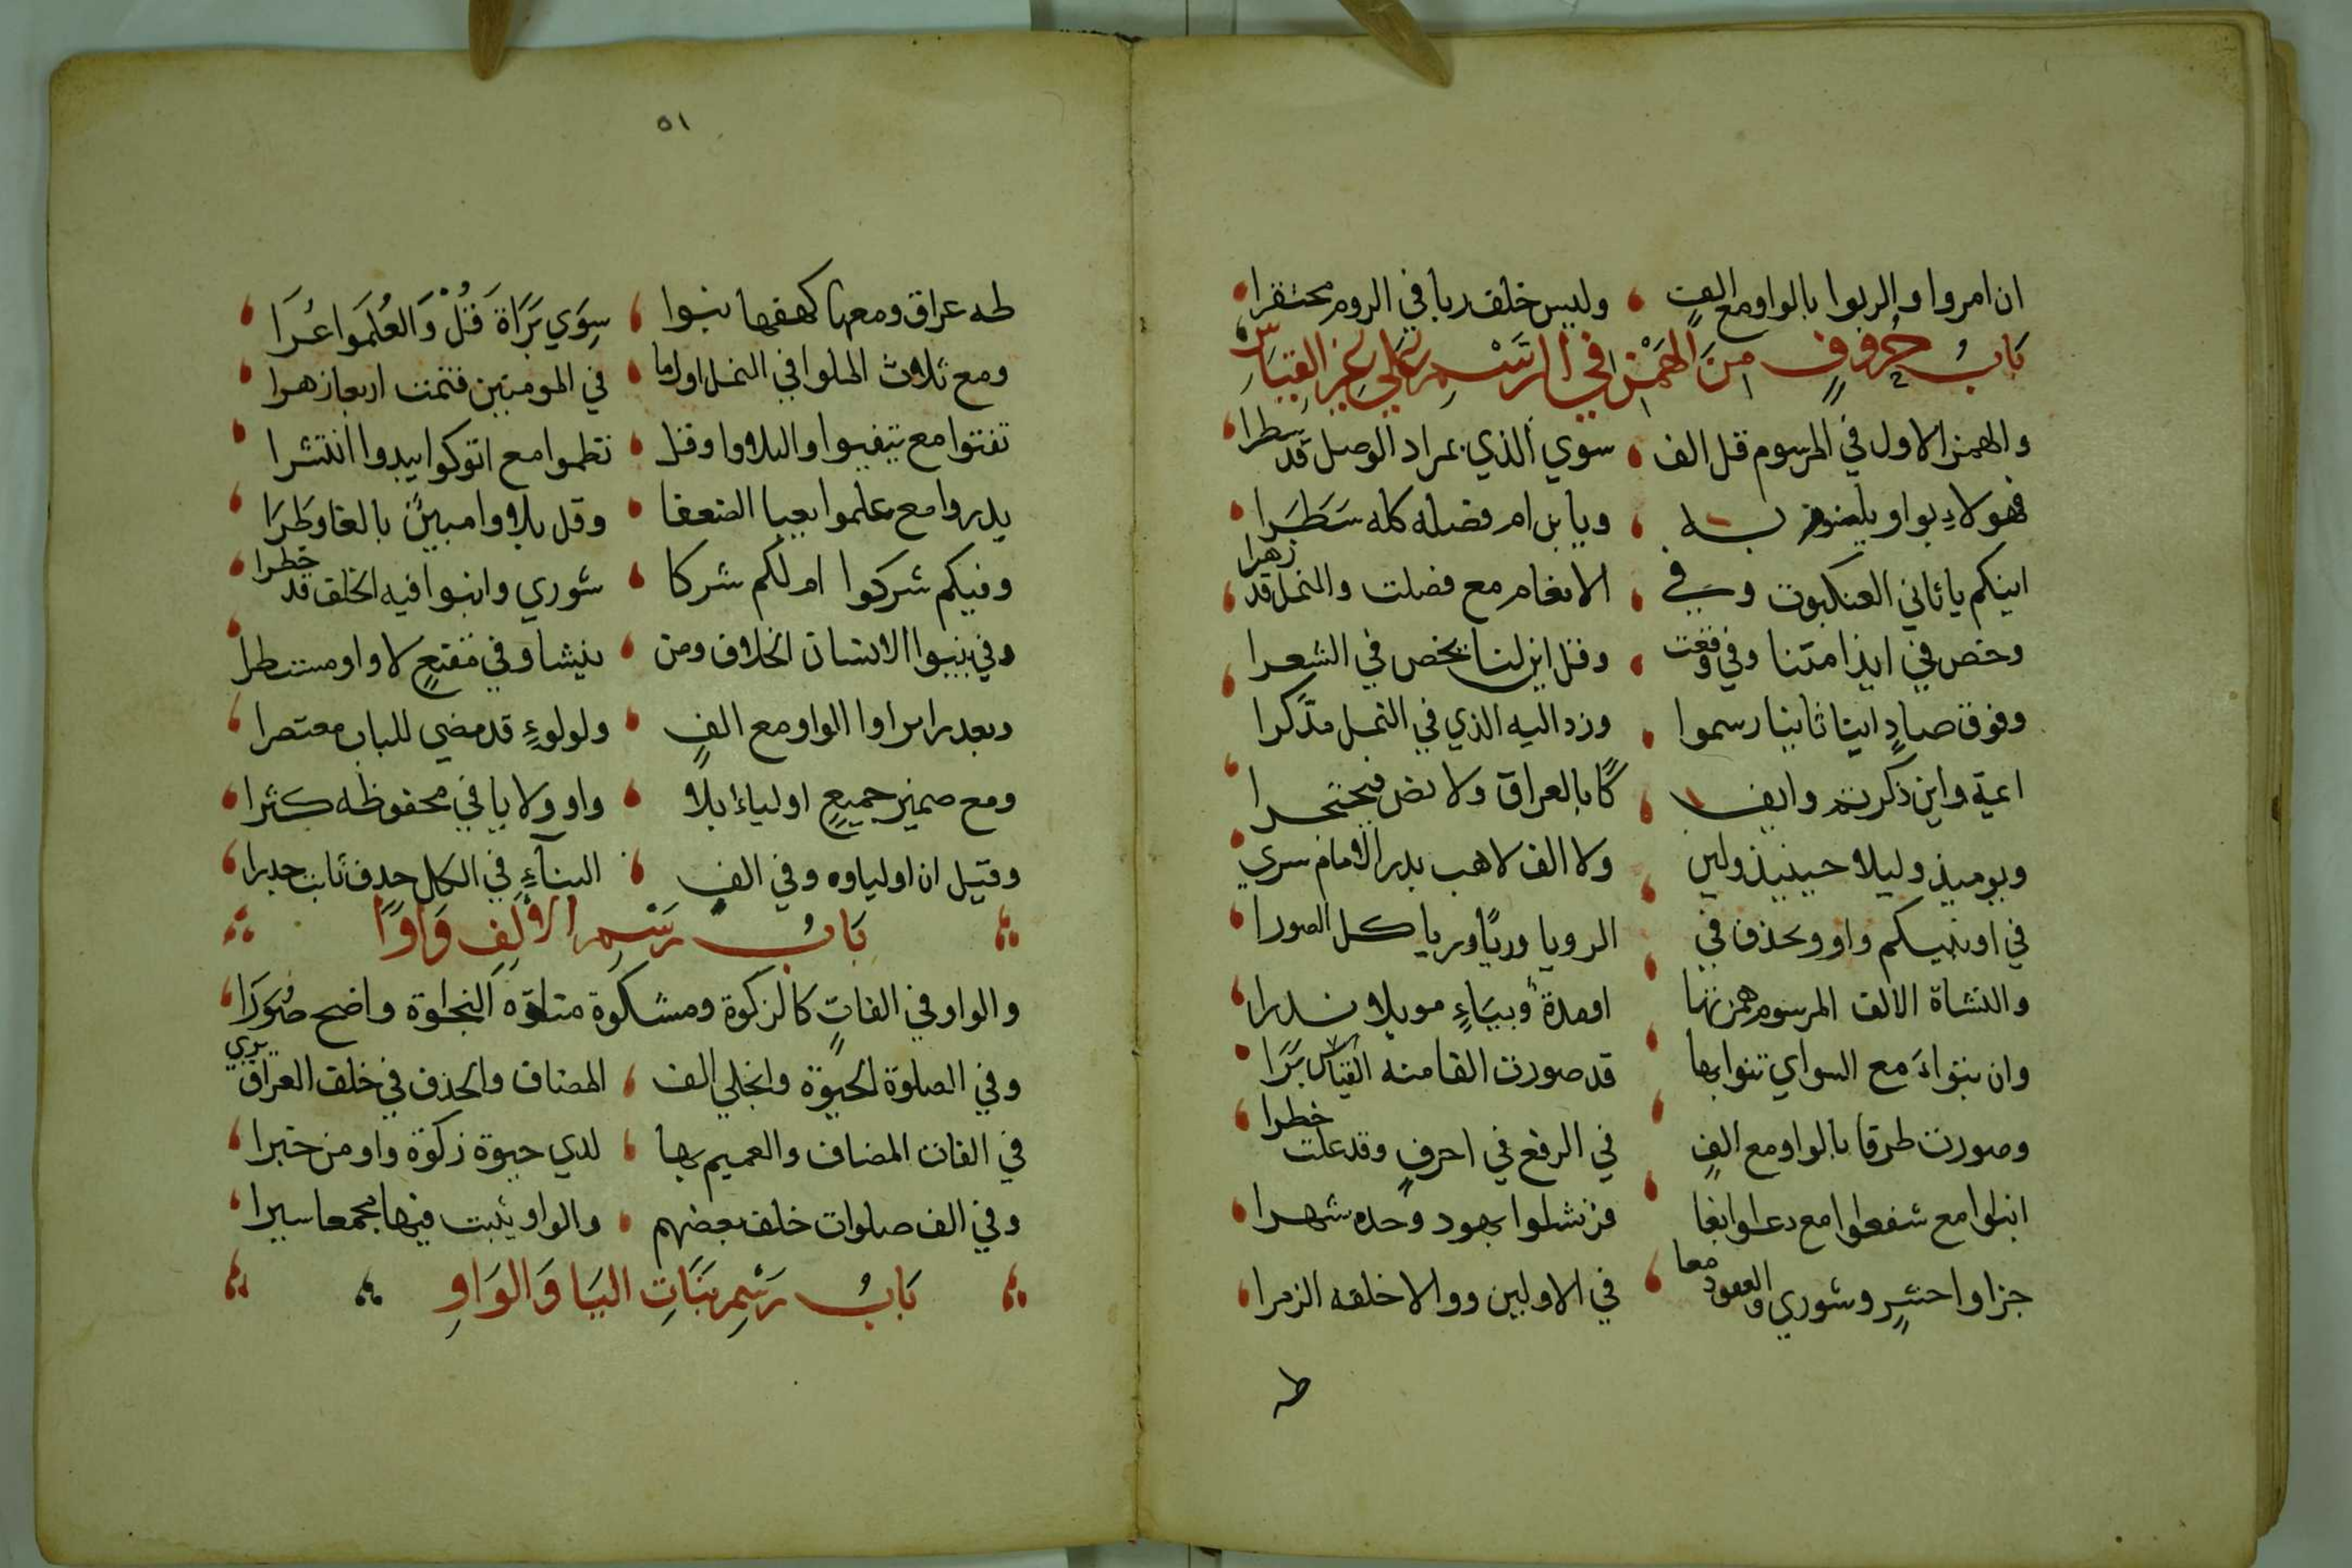 ان امروا والربوا بالواو مع الف وليس خلف ربا في الروم محتقرا
باب حروف من الهمز في الرسم على غير القياس
والهمز الاول في المرسوم قل الف سوي الذي بمراد الوصل قد سطرا
فهولاء بواو يبنوم به ويابن ام فصله كله سطرا
اينكم ياثاني العنكبوت وفي الانعام مع فصلت والنمل قد زهرا
وخص في ايذا متنا وفي وقعت وقل اين لنا يخص في الشعرا
وفوق صاد اينا ثانيا رسموا وزد اليه الذي في النمل مدكرا
اىمة واين ذكرتم وايفكا بالعراق ولا نص فيحتجرا
ويوميذ وليلا حينيذ ولين ولا الف لاهب بدر الامام سري
في اونبيكم واو ويحذف في الرويا وريا وريا كل الصورا
والنشاة الالف المرسوم همزتها او مدة وبياء مويلا ندرا
وان تبواء مع السواي تنوا بها قد صورت الفا منه القياس برا
وصورت طرفا بالواو مع الف في الرفع في احرف وقد علت خطرا
انبوا مع شفعوا مع دعوا بغا فر نشوا بهود وحده شهرا
جزاوا حشر وشوري والعقود معا في الاولين ووالا خلفه الزمرا
طه
٥١
طه عراق ومعها كهفها نبوا سوي براة قل والعلموا عرا
ومع ثلاث الملوا في النمل اولما في المومنين فتمت اربعا زهرا
تفتوا مع يتفيوا والبلاوا وقل تظموا مع اتوكوا يبدوا انتشرا
يدروا مع علموا يعبا الضعفا وقل بلاوا مبين بالغا وطرا
وفيكم شركوا ام لكم شركا شوري وانبوا فيه الخلف قد خطرا
وفي ينبوا الانسان الخلاف ومن ينشا وفي مقنع لا واو مستطرا
وبعد را براوا الواو مع الف ولولوء قد مضي للباب معتصرا
ومع ضمير جميع اولياء بلا واو ولا يا في محفوظه كثرا
وقيل ان اولياوه وفي الف البناء في الكل حذف ثابت جدرا
باب رسم الالف واوا
والواو في الفات كالزكوة ومشكوة منوة النجوة واضح صورا
وفي الصلوة الحيوة وانجلي الف المضاف والحذف في خلف العراق يري
في الفات المضاف والعميم بها لدي حيوة زكوة واو من خبرا
وفي الف صلوات خلف بعضهم والواو يثبت فيها مجمعا سيرا
باب رسم بنات اليا والواو